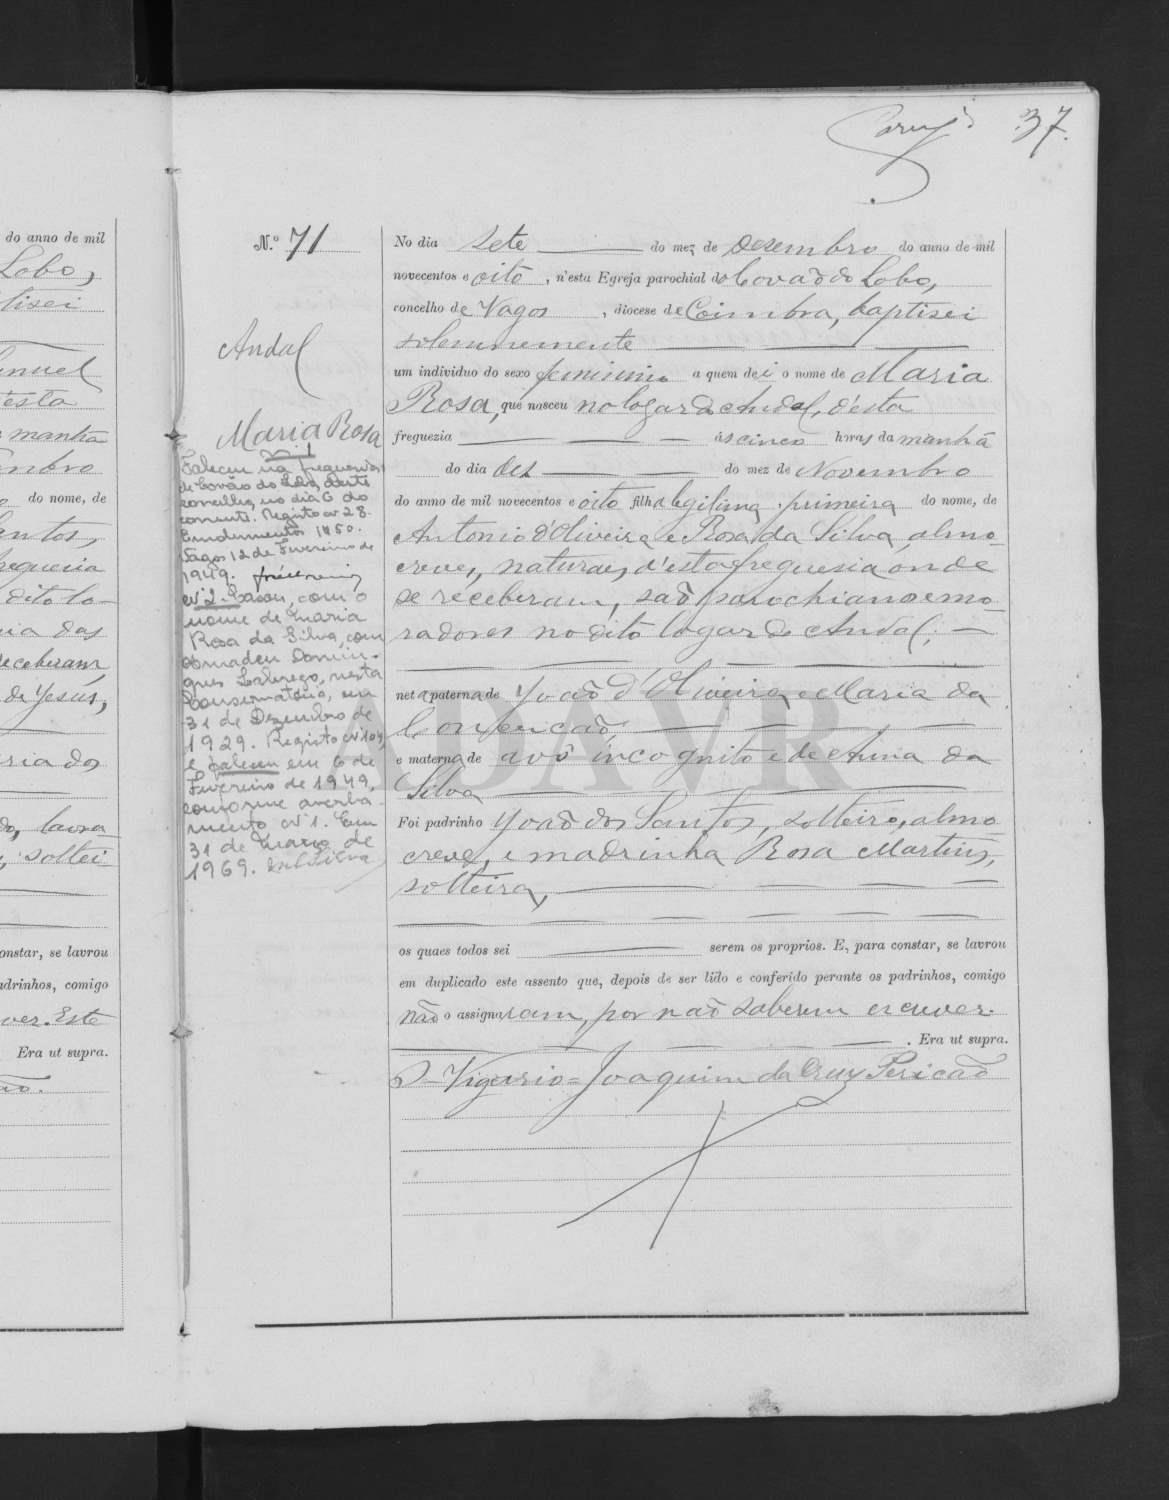 37.
do anno de mil
Lobo,
tisei
anuel
d'esta
manhã
embro
do nome, de
entos,
freguezia
dito lo-
ria das
receberam,
de Jesus,
ria do
lavra
soltei
constar, se lavrou
adrinhos, comigo
ver. Este
Era ut supra.
ão.
N.º 71
Andal
Maria Rosa
Nº 1
Faleceu na freguesia
de Covão do Lobo, deste
concelho, no dia 6 do
corrente. Registo nº 28.
Emolumentos 1$50.
Vagos 12 de Fevereiro de
1949.
Nº 2 - Casou, com o
nome de Maria
Rosa da Silva, com
Amadeu Domin-
gues, nesta
Conservatória, em
31 de Dezembro de
1929. Registo nº 104,
e faleceu em 6 de
Fevereiro de 1949,
conforme averba-
mento nº 1. Em
31 de Março de
1969.
No dia sete do mez de Dezembro do anno de mil
novecentos e oito, n'esta Egreja parochial do Covão do Lobo,
concelho de Vagos, diocese de Coimbra, baptisei
solemnemente
um individuo do sexo feminino a quem dei o nome de Maria
Rosa, que nasceu no logar de Andal, d'esta
freguezia ás cinco horas da manhã
do dia dez do mez de Novembro
do anno de mil novecentos e oito filha legitima, primeira do nome, de
Antonio d'Oliveira e Rosa da Silva, almo-
creves, naturaes d'esta freguesia onde
se receberam, são parochianos e mo-
radores no dito logar de Andal;
neta paterna de João d'Oliveira e Maria da
Conceicão,
e materna de avô incognito e de Anna da
Silva
Foi padrinho João dos Santos, solteiro, almo
creve, e madrinha Rosa Martins,
solteira,
os quaes todos sei serem os proprios. E, para constar, se lavrou
em duplicado este assento que, depois de ser lido e conferido perante os padrinhos, comigo
não o assignaram, por não saberem escrever.
. Era ut supra.
O Vigario = Joaquim da Cruz Pericão
ADAVR